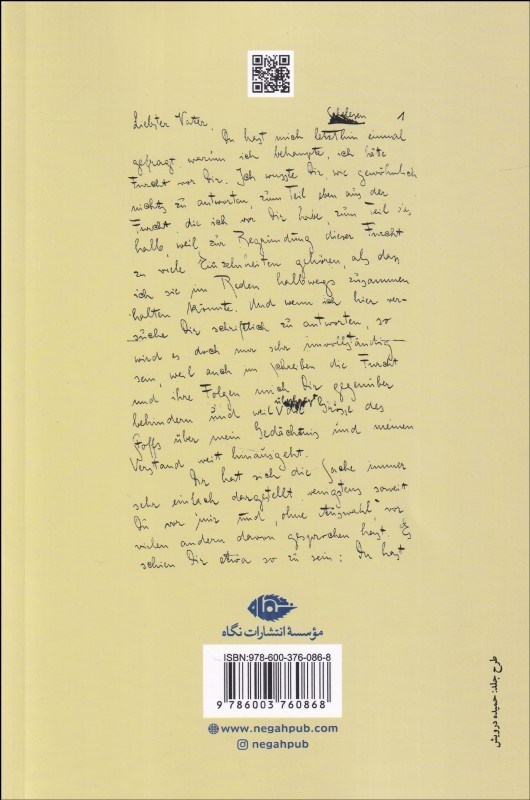 Schelesen 1
Liebster Vater,
Du hast mich letzthin einmal
gefragt, warum ich behaupte, ich hätte
Furcht vor Dir. Ich wusste Dir, wie gewöhnlich
nichts zu antworten, zum Teil eben aus der
Furcht, die ich vor Dir habe, zum Teil des
halb, weil zur Begründung dieser Furcht
zu viele Einzelnheiten gehören, als dass
ich sie im Reden halbwegs zusammen
halten könnte. Und wenn ich hier ver-
suche Dir schriftlich zu antworten, so
wird es doch nur sehr unvollständig
sein, weil auch im Schreiben die Furcht
und ihre Folgen mich Dir gegenüber
behindern und weil die Grösse des
Stoffs über mein Gedächtnis und meinen
Verstand weit hinausgeht.
Dir hat sich die Sache immer
sehr einfach dargestellt, wenigstens soweit
Du vor mir und, ohne Auswahl, vor
vielen andern davon gesprochen hast. Es
schien Dir etwa so zu sein: Du hast
نگاه
مؤسسهٔ انتشارات نگاه
ISBN:978-600-376-086-8
9 786003 760868
www.negahpub.com
negahpub
طرح جلد: حمیده درویش